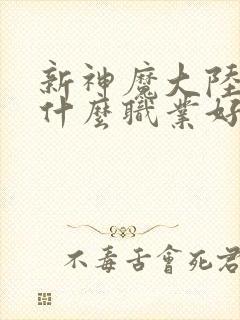 新神魔大陸
什麼職業好
不毒舌會死君